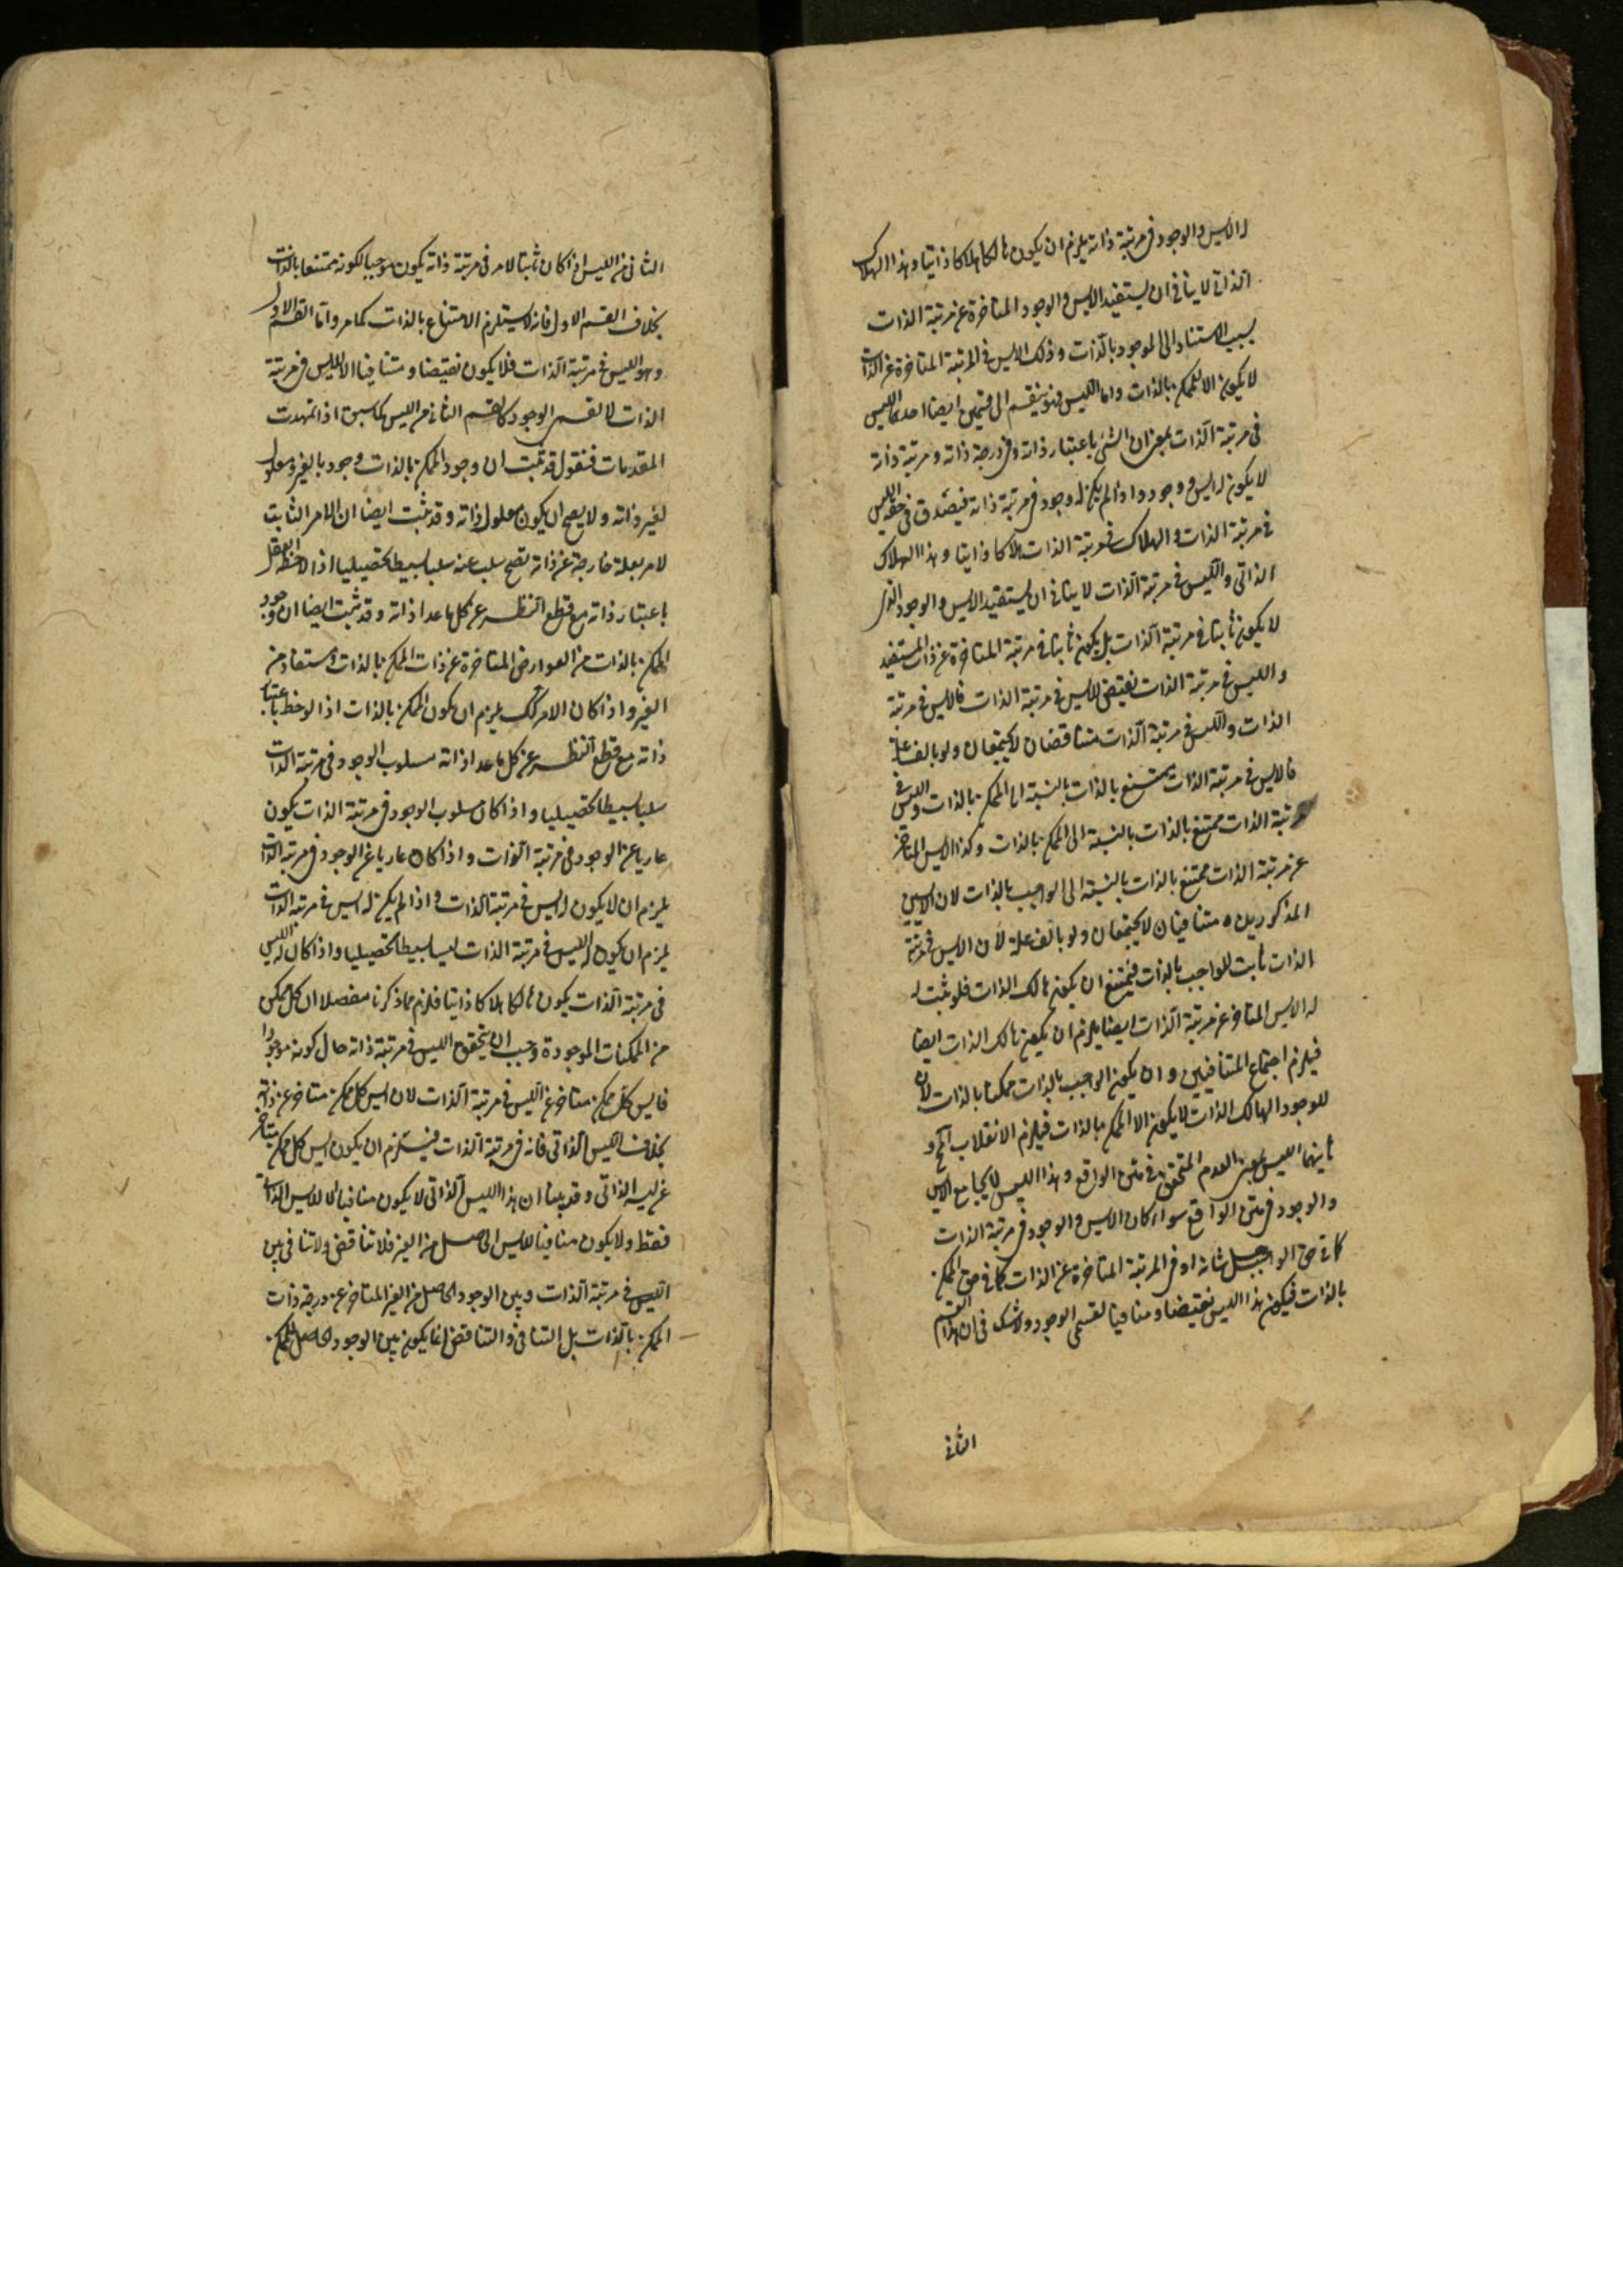 له الايس والوجود فى مرتبة ذاته يلزم ان يكون هالكا هلاكا ذاتيا وهذا الهلاك
الذاتى لا ينافى ان يستفيد الايس والوجود المتاخرة عن مرتبة الذات
بسبب الاستناد الى الموجود بالذات وذلك الايس فى المرتبة المتاخرة عن الذات
لا يكون الا للممكن بالذات واما الليس فهو ينقسم الى قسمين ايضا احدهما الليس
فى مرتبة الذات بمعنى ان الشئ باعتبار ذاته وفى درجة ذاته ومرتبة ذاته
لا يكون له ايس ووجود واذا لم يكن له وجود فى مرتبة ذاته فيصدق فى حقه الليس
فى مرتبة الذات والهلاك فى مرتبة الذات هلاكا ذاتيا وهذا الهلاك
الذاتى والليس فى مرتبة الذات لا ينافى ان يستفيد الايس والوجود الذى
لا يكون ثابتا فى مرتبة الذات بل يكون ثابتا فى مرتبة المتاخرة عن ذات المستفيد
والليس فى مرتبة الذات نقيض للايس فى مرتبة الذات فالايس فى مرتبة
الذات والليس فى مرتبة الذات متناقضان لا يجتمعان ولو بالف علة
فالايس فى مرتبة الذات ممتنع بالذات بالنسبة الى الممكن بالذات والليس فى
مرتبة الذات ممتنع بالذات بالنسبة الى الممكن بالذات وكذا الايس المتاخر
عن مرتبة الذات ممتنع بالذات بالنسبة الى الواجب بالذات لان الايسين
المذكورين متنافيان لا يجتمعان ولو بالف علة لان الايس فى مرتبة
الذات ثابت للواجب بالذات فيمتنع ان يكون هالك الذات فلو ثبت له
له الايس المتاخر عن مرتبة الذات ايضا يلزم ان يكون هالك الذات ايضا
فيلزم اجتماع المتنافيين وان يكون الواجب بالذات ممكنا بالذات لان
الموجود الهالك الذات لا يكون الا الممكن بالذات فيلزم الانقلاب المح و
ثانيهما الليس بمعنى العدم المتحقق فى متن الواقع وهذا الليس لا يجامع الايس
والوجود فى متن الواقع سواء كان الايس والوجود فى مرتبة الذات
كما فى حق الواجب جل شانه او فى المرتبة المتاخرة عن الذات كما فى حق الممكن
بالذات فيكون هذا الليس نقيضا ومنافيا لقسمى الوجود ولا شك فى ان هذا القسم
الثانى
الثانى من الليس اذا كان ثابتا لامر فى مرتبة ذاته يكون موجبا لكونه ممتنعا بالذات
بخلاف القسم الاول فانه لا يستلزم الامتناع بالذات كما مر واما القسم الاول
وهو الليس فى مرتبة الذات فلا يكون نقيضا ومتنافيا الا للايس فى مرتبة
الذات لا لقسمى الوجود كالقسم الثانى من الليس كما سبق اذا تمهدت
المقدمات فنقول قد ثبت ان وجود الممكن بالذات وجود بالغير ومعلول
لغير ذاته ولا يصح ان يكون معلول ذاته وقد ثبت ايضا ان الامر الثابت
لامر بعلة خارجة عن ذاته تصح سلبه عنه سلبا بسيطا تحصيليا اذا لاحظه العقل
باعتبار ذاته مع قطع النظر عن كل ما عدا ذاته وقد ثبت ايضا ان وجود
الممكن بالذات من العوارض المتاخرة عن ذات الممكن بالذات ومستفاد من
الغير واذا كان الامر كك يلزم ان يكون الممكن بالذات اذا لوحظ باعتبار
ذاته مع قطع النظر عن كل ما عدا ذاته مسلوب الوجود فى مرتبة الذات
سلبا بسيطا تحصيليا واذا كان مسلوب الوجود فى مرتبة الذات يكون
عاريا عن الوجود فى مرتبة الذات واذا كان عاريا عن الوجود فى مرتبة الذات
يلزم ان لا يكون له ايس فى مرتبة الذات واذا لم يكن له ايس فى مرتبة الذات
يلزم ان يكون له الليس فى مرتبة الذات ليسا بسيطا تحصيليا واذا كان له الليس
فى مرتبة الذات يكون هالكا هلاكا ذاتيا فلزم مما ذكرنا مفصلا ان كل ممكن
من الممكنات الموجودة وجب ان يتحقق الليس فى مرتبة ذاته حال كونه موجودا
فايس كل ممكن متاخر عن الليس فى مرتبة الذات لان ايس كل ممكن متاخر عن ذاته
بخلاف الليس الذاتى فانه فى مرتبة الذات فيستلزم ان يكون ايس كل ممكن متاخر
عن ليسه الذاتى وقد بينا ان هذا الليس الذاتى لا يكون منافيا الا للايس الذاتى
فقط ولا يكون منافيا للايس الحاصل من الغير فلا تناقض ولا تنافى بين
الليس فى مرتبة الذات وبين الوجود الحاصل من الغير المتاخر عن درجة ذات
الممكن بالذات بل التنافى والتناقض انما يكون بين الوجود الحاصل للممكن